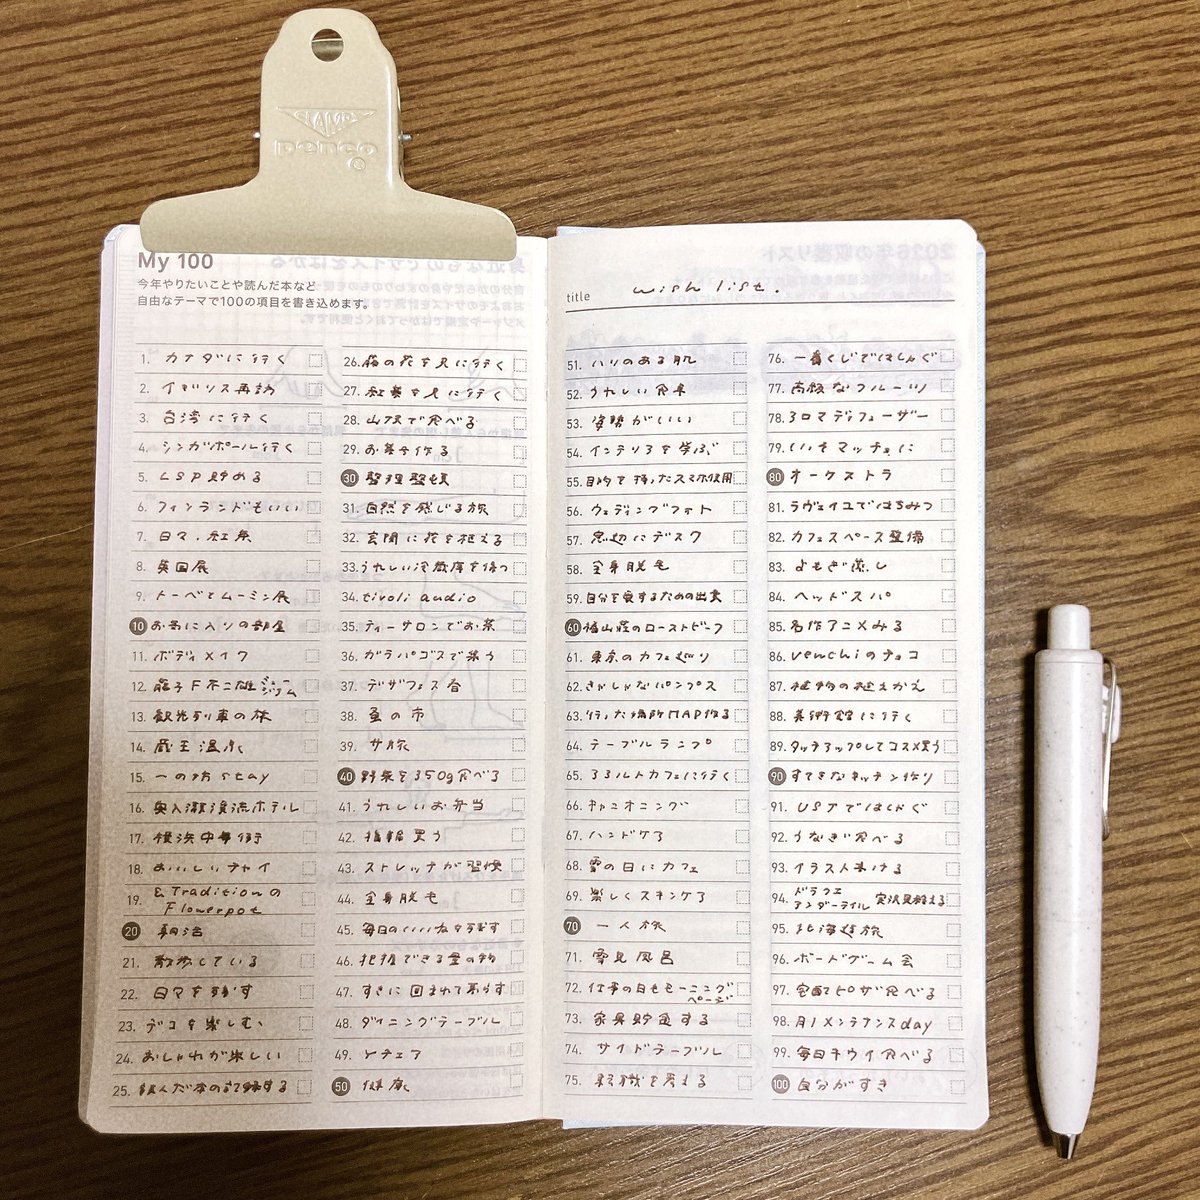 PENCO
My 100
今年やりたいことや読んだ本など
自由なテーマで100の項目を書き込めます。
1. カナダに行く
2. イギリス再訪
3. 台湾に行く
4. シンガポール行く
5. LSP貯める
6. フィンランドもいい
7. 日々、紅茶
8. 英国展
9. トーベとムーミン展
10 お気に入りの部屋
11. ボディメイク
12. 藤子F不二雄ミュージアム
13. 観光列車の旅
14. 蔵王温泉
15. 一の坊stay
16. 奥入瀬渓流ホテル
17. 横浜中華街
18. おいしいチャイ
19. &Traditionの
Flowerpot
20 朝活
21. 散歩している
22. 日々を残す
23. デコを楽しむ
24. おしゃれが楽しい
25. 読んだ本の記録する
26. 桜の花を見に行く
27. 紅葉を見に行く
28. 山形で食べる
29. お菓子作る
30 整理整頓
31. 自然を感じる旅
32. 玄関に花を植える
33. うれしい冷蔵庫を保つ
34. tivoli audio
35. ティーサロンでお茶
36. ガラパゴスで集う
37. デザフェス
38. 蚤の市
39. サ旅
40 野菜を350g食べる
41. うれしいお弁当
42. 指輪買う
43. ストレッチが習慣
44. 全身脱毛
45. 毎日のいいねを残す
46. 把握できる量の物
47. すきに囲まれて暮らす
48. ダイニングテーブル
49. Yチェア
50 健康
title wish list.
51. ハリのある肌
52. うれしい食卓
53. 姿勢がいい
54. インテリアを学ぶ
55. 目的を持ったスマホ使用
56. ウェディングフォト
57. 窓辺にデスク
58. 全身脱毛
59. 自分を愛するための出費
60 福山荘のローストビーフ
61. 東京のカフェ巡り
62. きゃしゃなパンプス
63. 行った場所MAP作る
64. テーブルランプ
65. アアルトカフェに行く
66. キャニオニング
67. ハンドケア
68. 雪の日にカフェ
69. 楽しくスキンケア
70 一人旅
71. 雪見風呂
72. 仕事の日もモーニング
ページ
73. 家具貯金する
74. サイドテーブル
75. 転職を考える
76. 一番くじではしゃぐ
77. 高級なフルーツ
78. アロマディフューザー
79. いっそマッチョに
80 オーケストラ
81. ラヴェイユではちみつ
82. カフェスペース整備
83. よもぎ蒸し
84. ヘッドスパ
85. 名作アニメみる
86. venchiのチョコ
87. 植物の植えかえ
88. 美術館に行く
89. タッチアップしてコスメ買う
90 すてきなキッチン作り
91. USJではしゃぐ
92. うなぎ食べる
93. イラストかける
94. ドラクエ
アンダーテイル 実況見終える
95. 北海道旅
96. ボードゲーム会
97. 宅配ピザ食べる
98. 月1メンテナンスday
99. 毎日キウイ食べる
100 自分がすき